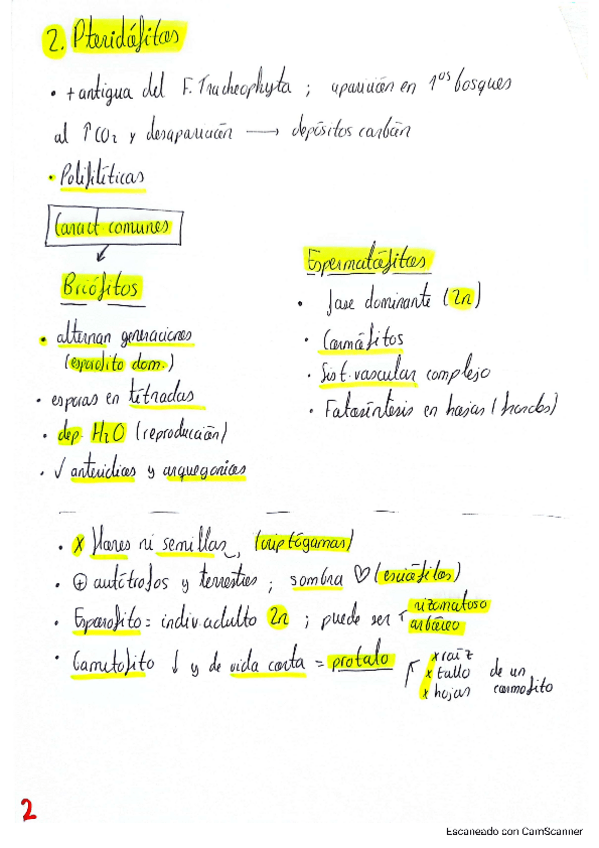 2. Pteridófitas
• + antigua del F. Tracheophyta ; aparición en 1ᵒˢ bosques
al ↑CO₂ y desaparición → depósitos carbón
• Polifiléticas
Caract comunes
Briófitos
• alternan generaciones
(esporofito dom.)
• esporas en tétradas
• dep. H₂O (reproducción)
• √ anteridios y arquegonios
Espermatófitas
• fase dominante (2n)
• Cormófitos
• Sist. vascular complejo
• Fotosíntesis en hojas (frondes)
• x flores ni semillas, (criptógamas)
• ⊕ autótrofos y terrestres ; sombra ♡ (esciófitos)
• Esporofito = indiv. adulto 2n ; puede ser rizomatoso
arbóreo
• Gametofito ↓ y de vida corta = protalo
x raíz
x tallo de un
x hojas cormofito
2
Escaneado con CamScanner